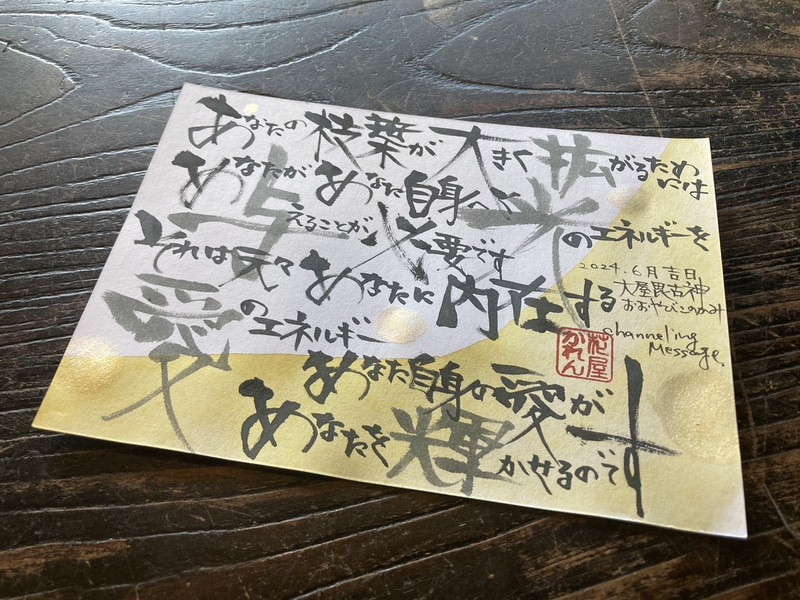 あなたの枝葉が大きく拡がるためには
あなたがあなた自身へ光のエネルギーを
与えることが必要です
それは元々あなたに内在する
愛のエネルギー
あなた自身の愛が
あなたを輝かせるのです
2024.6月吉日
大屋毘古神
おおやびこのかみ
channeling
Message
花屋
かれん